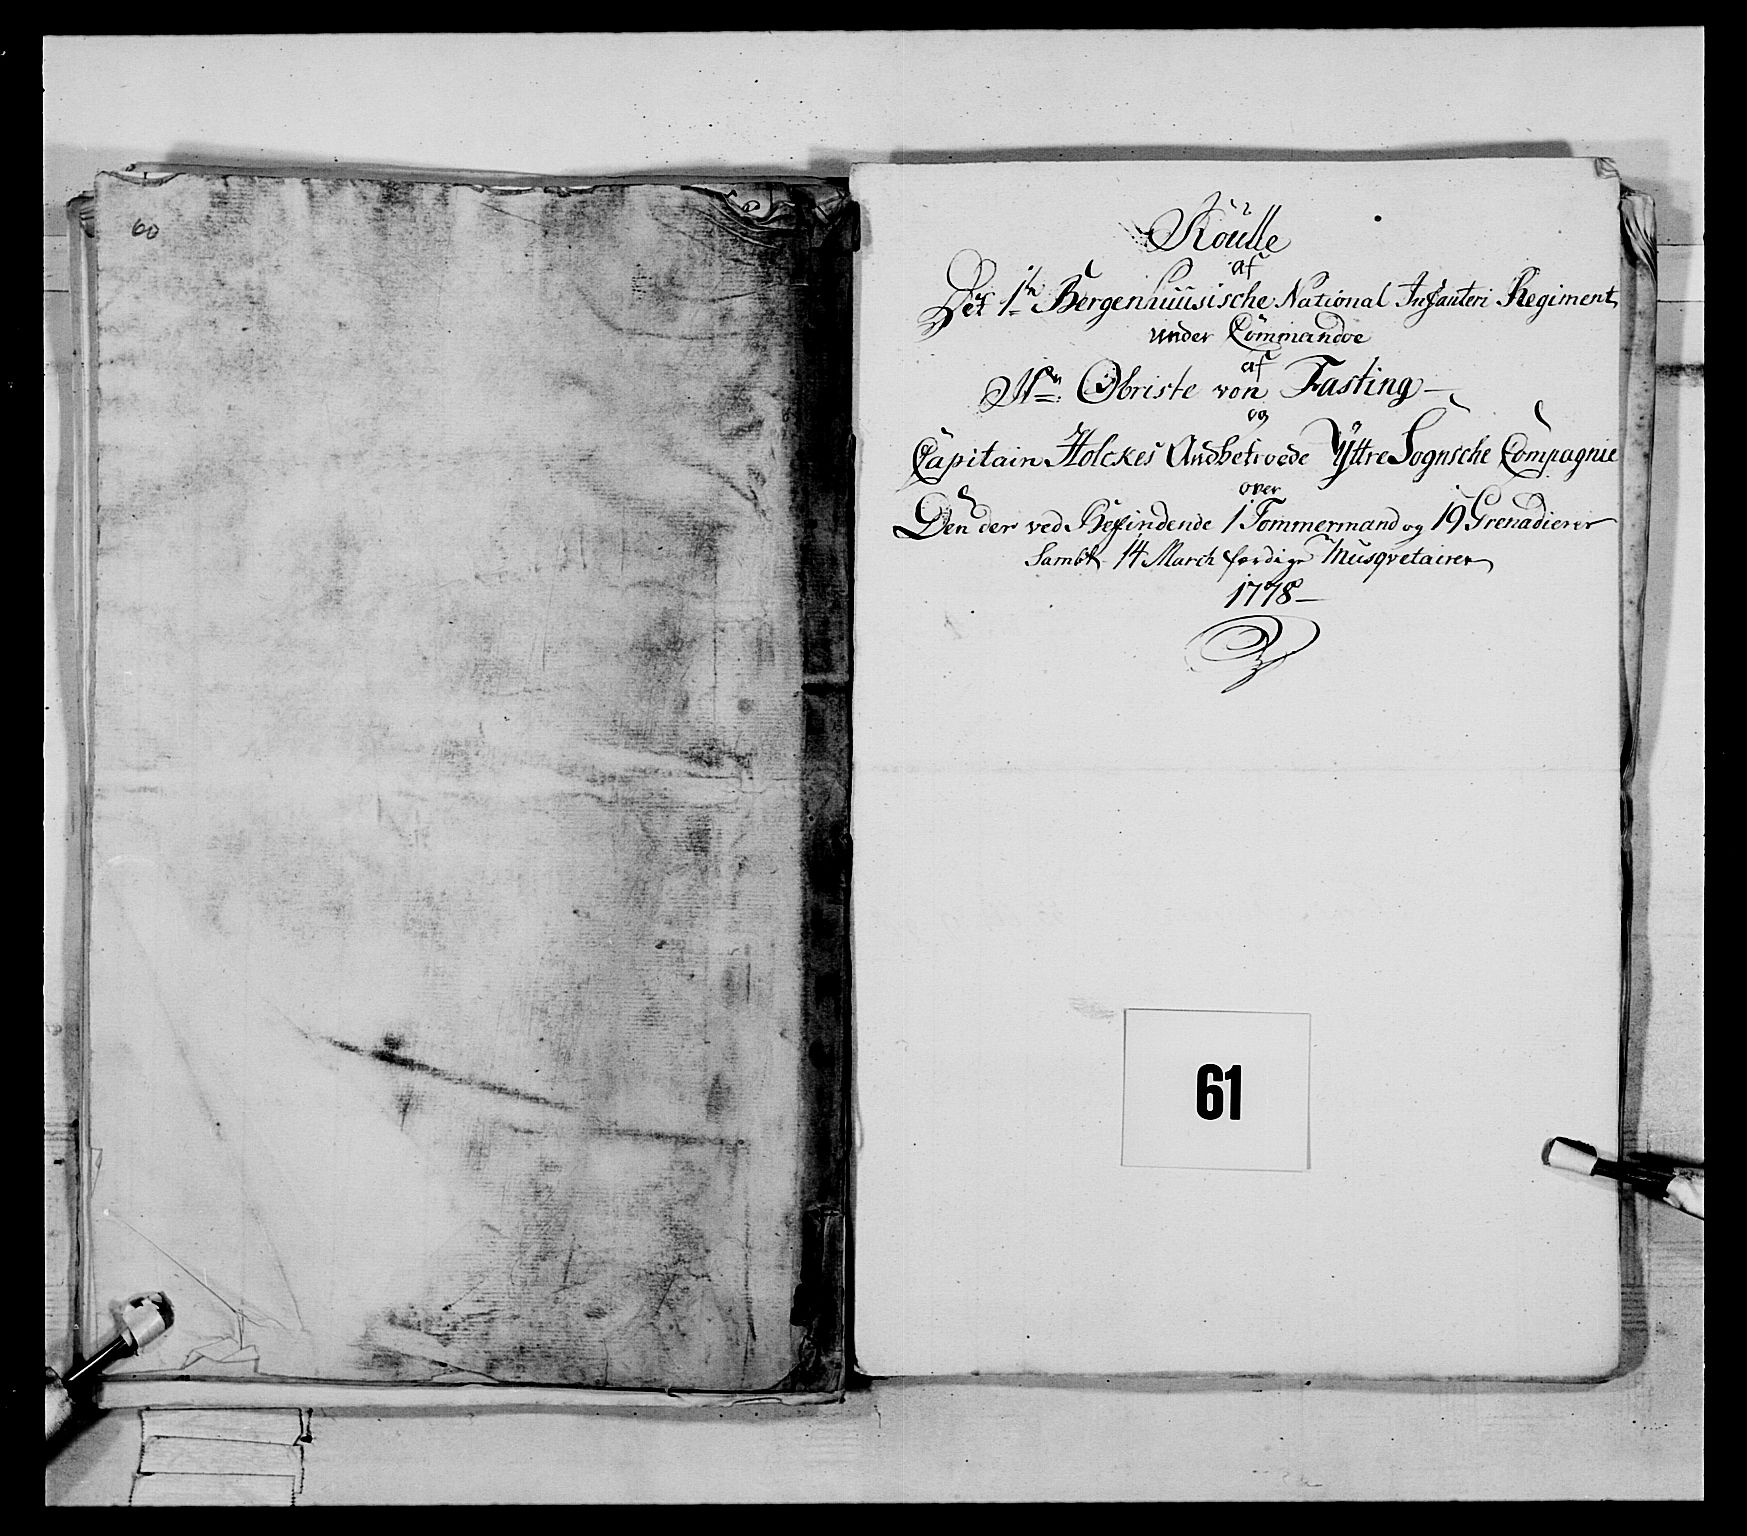 60
Roulle
af
Det 1te Bergenhuusische National Infanteri Regiment
under Commandoe
af
Hr: Obriste von Fasting
og
Capitain Holckes Andbetroede Yttre Sognsche Compagnie
over
Den der ved Befindende 1 Tømmermand og 19 Grenadierer
Sambt 14 March færdige Musqvetairer
1778
61